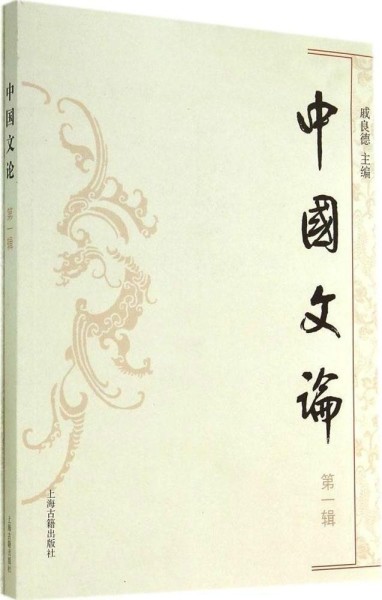 戚良德 主编
中國文論
第一辑
上海古籍出版社
中国文论
第一辑
上海古籍出版社